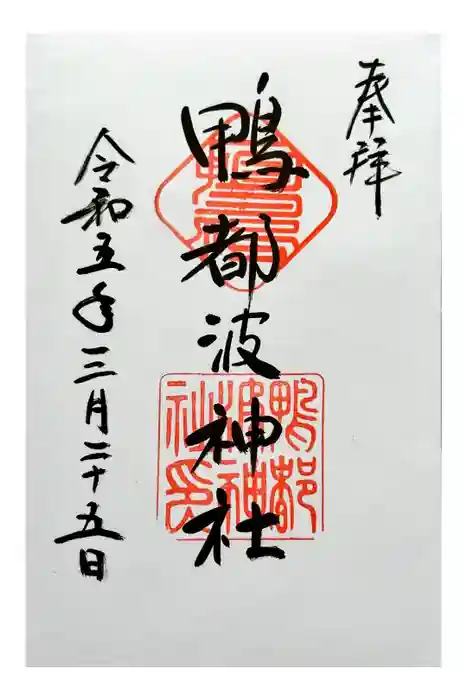 奉拝
鴨都波神社
鴨都波神社印
令和五年三月二十五日